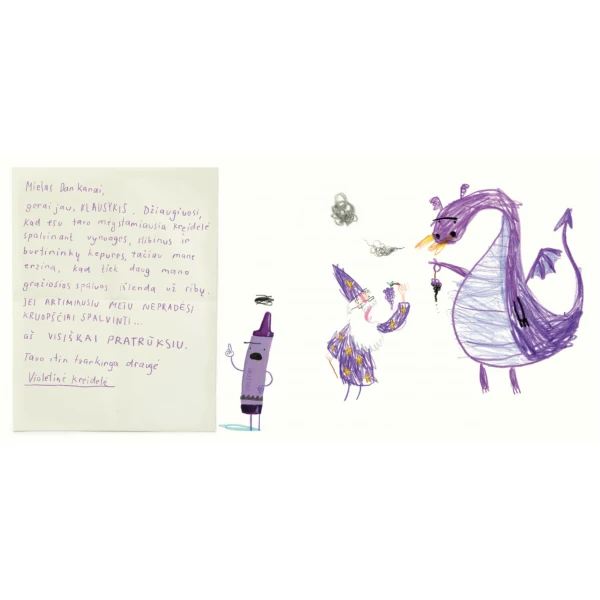 Mielas Dankanai,
gerai jau, KLAUSYKIS. Džiaugiuosi,
kad esu tavo mėgstamiausia kreidelė
spalvinant vynuoges, slibinus ir
burtininkų kepures, tačiau mane
erzina, kad tiek daug mano
gražiosios spalvos išlenda už ribų.
JEI ARTIMIAUSIU METU NEPRADĖSI
KRUOPŠČIAI SPALVINTI...
aš VISIŠKAI PRATRŪKSIU.
Tavo itin tvarkinga draugė
Violetinė kreidelė